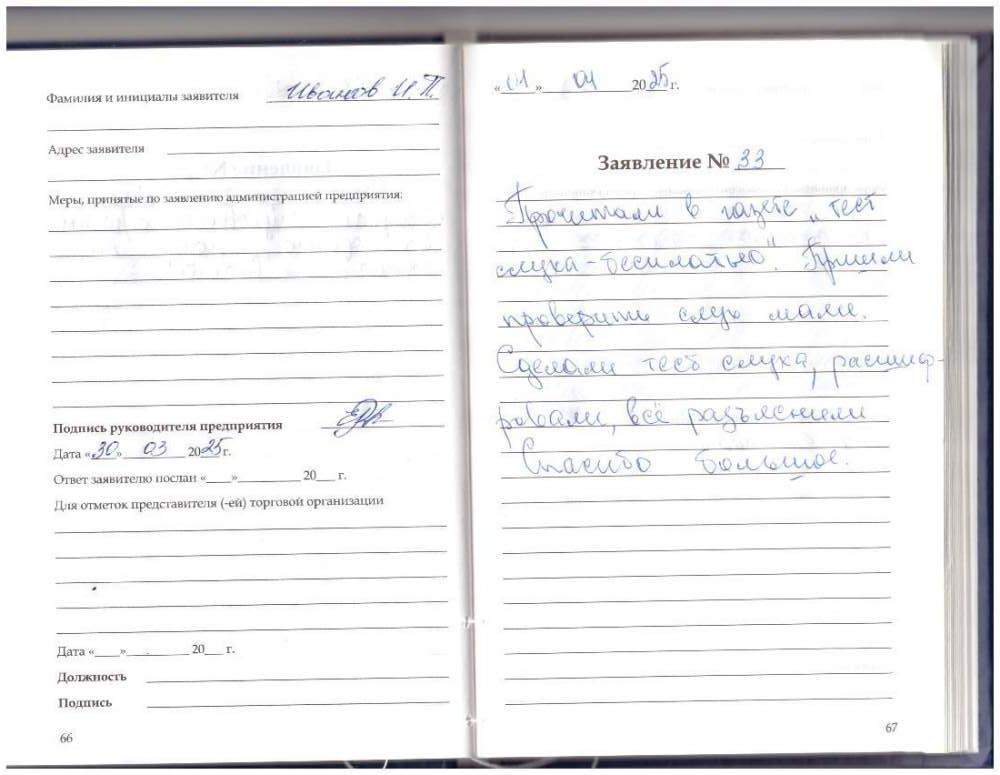 Фамилия и инициалы заявителя Иванов И.П.
Адрес заявителя
Меры, принятые по заявлению администрацией предприятия:
Подпись руководителя предприятия
Дата «30» 03 2025 г.
Ответ заявителю послан «___» ________ 20___ г.
Для отметок представителя (-ей) торговой организации
Дата «___» ________ 20___ г.
Должность
Подпись
66
«01» 04 2025 г.
Заявление № 33
Прочитали в газете „тест
слуха-бесплатно". Пришли
проверить слух маме.
Сделали тест слуха, расшиф-
ровали, всё разъяснили
Спасибо большое.
67